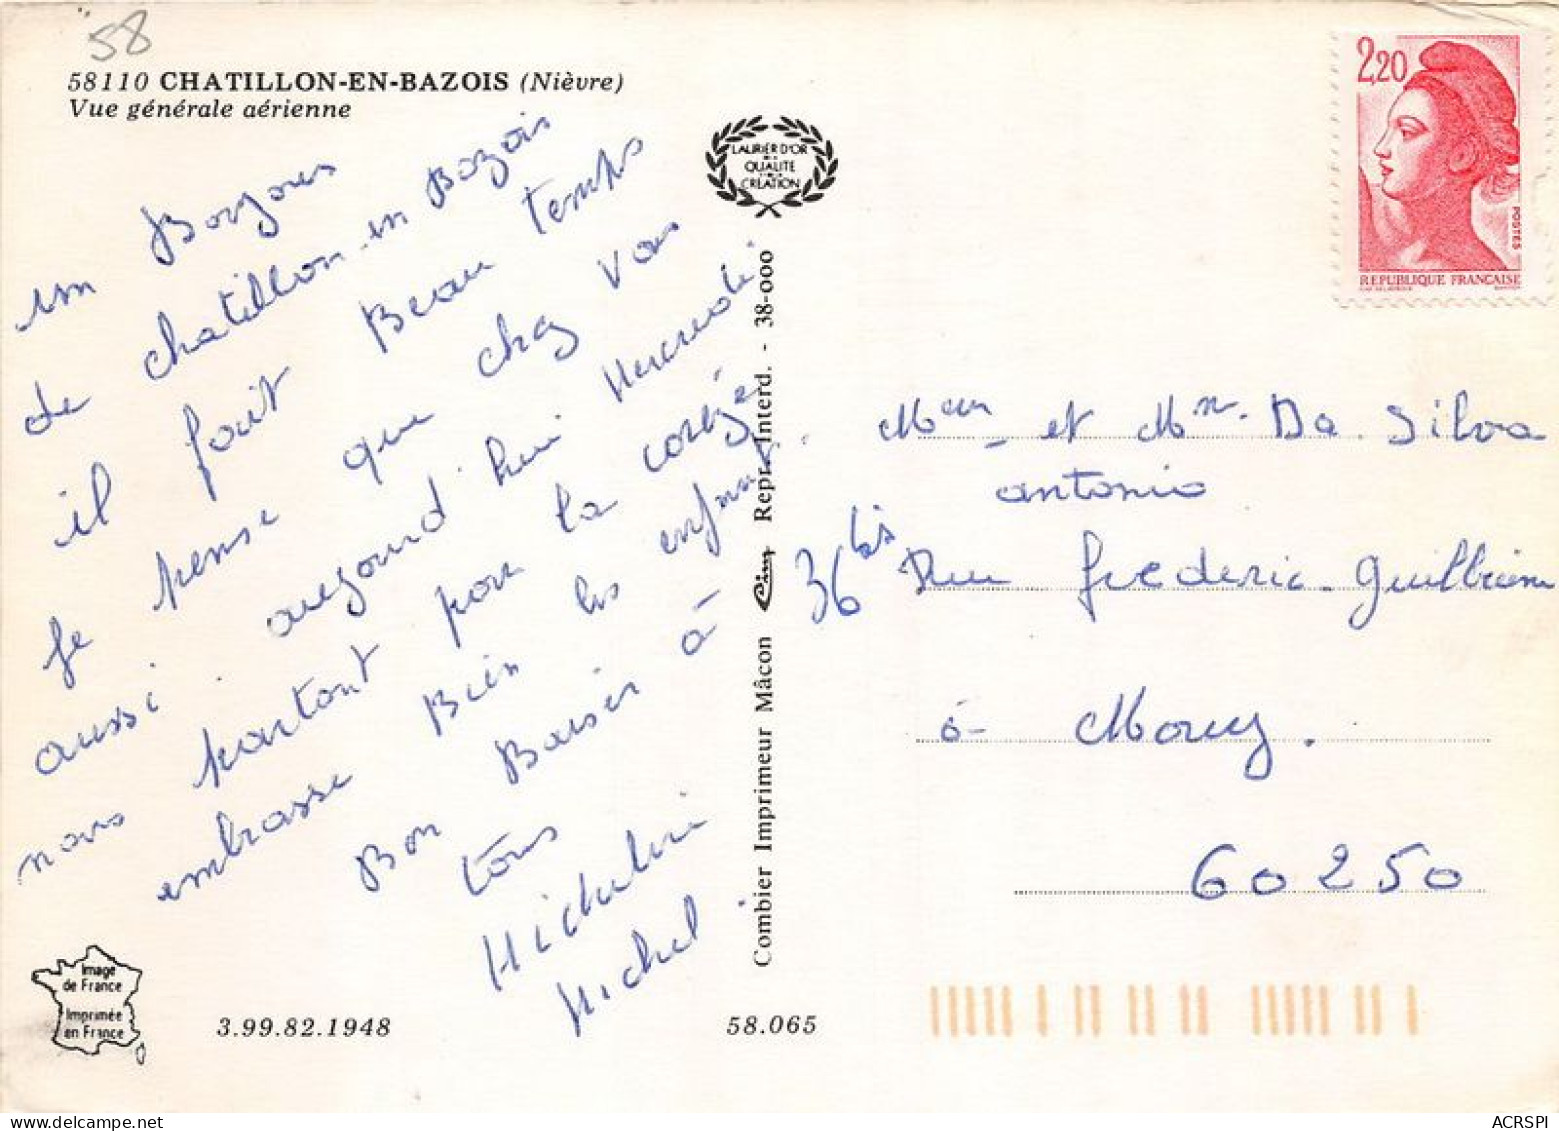 58
58110 CHATILLON-EN-BAZOIS (Nièvre)
Vue générale aérienne
un Bonjours
de chatillon-en Bazois
il fait Beau temps
je pense que chez vous
aussi aujourd'hui Mercredi
nous partont pour la corèze
embrasse Bien les enfants.
Bon Baiser à
tous
Micheline
Michel.
LAURIER D'OR
DE LA
QUALITÉ
CRÉATION
Combier Imprimeur Mâcon Cim Repr. Interd. - 38-000
2,20
POSTES
REPUBLIQUE FRANÇAISE
Mem et Mr. Da Silva
antonio
36 bis Rue frederic-guillaume
à Mouy.
60250
Image
de France
Imprimée
en France
3.99.82.1948
58.065
ACRSPI